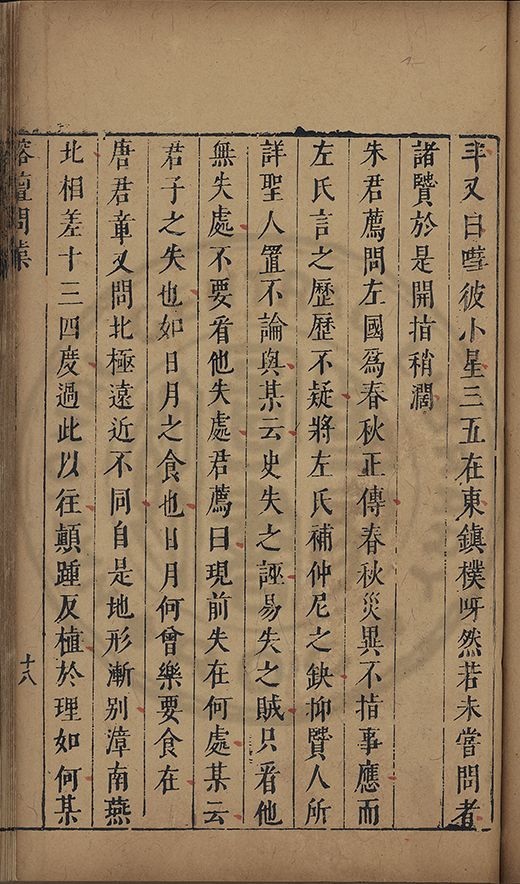 丰又曰嘒彼小星三五在東鎮樸呀然若未嘗問者
諸贒於是開㨖稍濶
朱君薦問左國爲春秋正傳春秋災異不㨖事應而
左氏言之歷歷不疑將左氏補仲尼之鈌抑贒人所
詳聖人置不論與某云史失之誣易失之賊只看他
無失處不要看他失處君薦曰現前失在何處某云
君子之失也如日月之食也日月何曾樂要食在
唐君章又問北極遠近不同自是地形漸別漳南燕
北相差十三四度過此以徃顛踵反植於理如何某
榕壇問業
十八